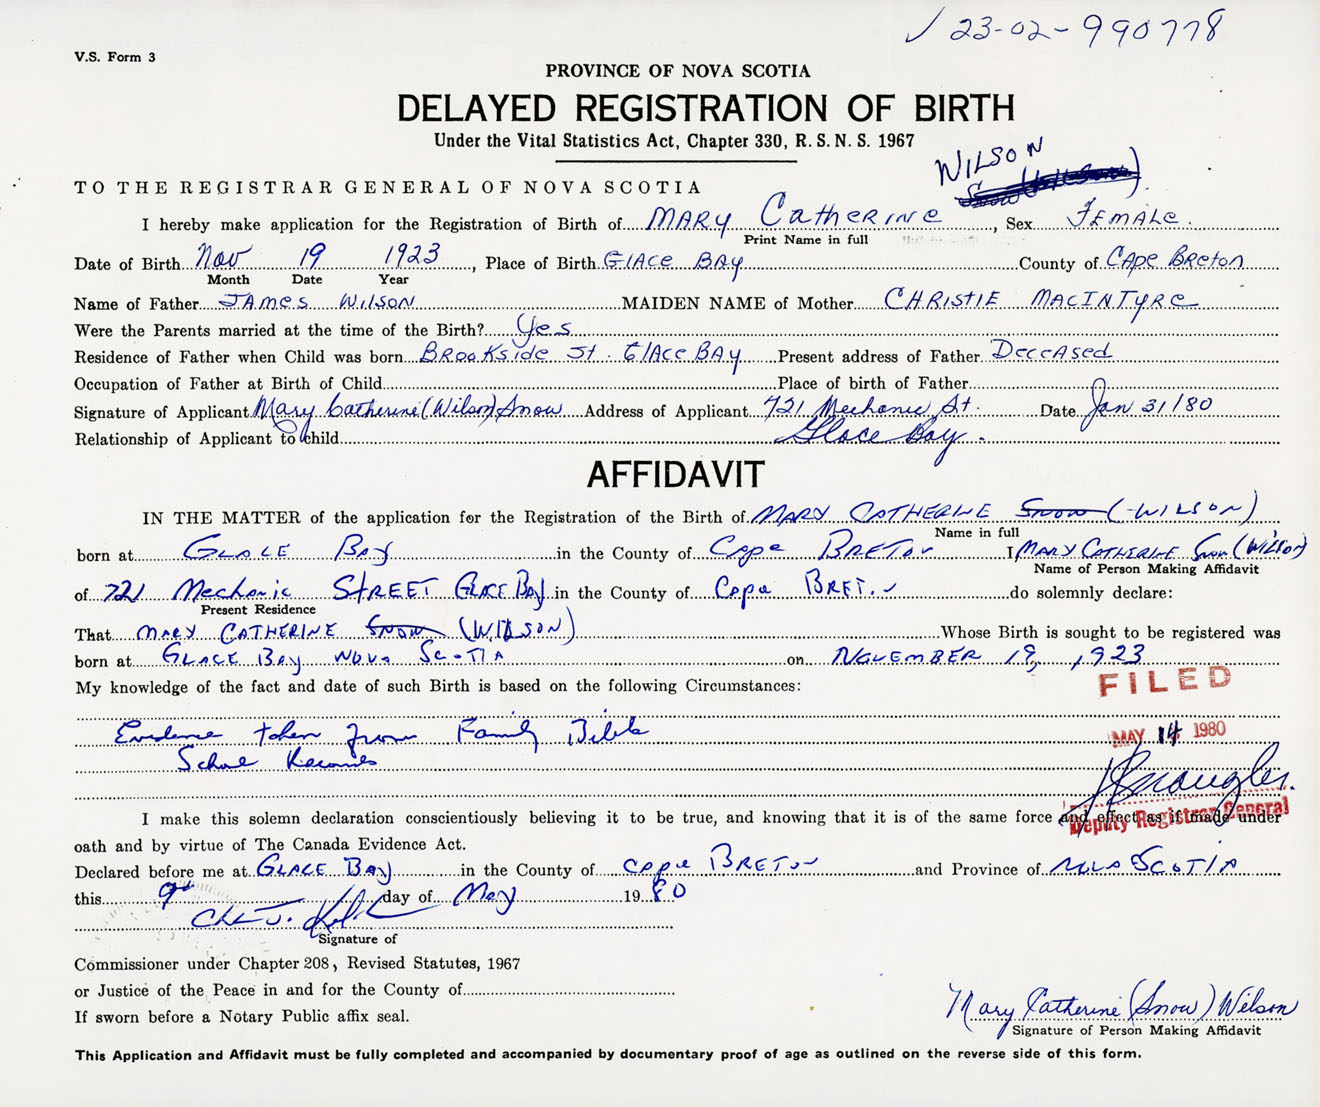 ✓ 23-02-990778
V.S. Form 3
PROVINCE OF NOVA SCOTIA
DELAYED REGISTRATION OF BIRTH
Under the Vital Statistics Act, Chapter 330, R. S. N. S. 1967
WILSON
TO THE REGISTRAR GENERAL OF NOVA SCOTIA
I hereby make application for the Registration of Birth of MARY Catherine, Sex FEMALE.
Print Name in full
Date of Birth Nov 19 1923, Place of Birth GLACE BAY County of CAPE BRETON
Month Date Year
Name of Father JAMES WILSON MAIDEN NAME of Mother CHRISTIE MACINTYRE
Were the Parents married at the time of the Birth? Yes
Residence of Father when Child was born BROOKSIDE ST. GLACE BAY Present address of Father DECEASED
Occupation of Father at Birth of Child Place of birth of Father
Signature of Applicant Mary Catherine (Wilson) Snow Address of Applicant 721 Mechanic St. Date Jan 31/80
Relationship of Applicant to child Glace Bay.
AFFIDAVIT
IN THE MATTER of the application for the Registration of the Birth of MARY CATHERINE SNOW (WILSON)
Name in full
born at GLACE BAY in the County of Cape BRETON I MARY CATHERINE Snow (WILSON)
Name of Person Making Affidavit
of 721 Mechanic STREET GLACE BAY in the County of Cape BRETON do solemnly declare:
Present Residence
That MARY CATHERINE SNOW (WILSON) Whose Birth is sought to be registered was
born at GLACE BAY NOVA SCOTIA on NOVEMBER 19, 1923
My knowledge of the fact and date of such Birth is based on the following Circumstances:
FILED
Evidence taken from Family Bible
MAY 14 1980
School Records
I make this solemn declaration conscientiously believing it to be true, and knowing that it is of the same force and effect as if made under
Deputy Registrar General
oath and by virtue of The Canada Evidence Act.
Declared before me at GLACE BAY in the County of Cape BRETON and Province of NOVA SCOTIA
this 9th day of May 1980
Signature of
Commissioner under Chapter 208, Revised Statutes, 1967
or Justice of the Peace in and for the County of
If sworn before a Notary Public affix seal.
Mary Catherine (Snow) Wilson
Signature of Person Making Affidavit
This Application and Affidavit must be fully completed and accompanied by documentary proof of age as outlined on the reverse side of this form.